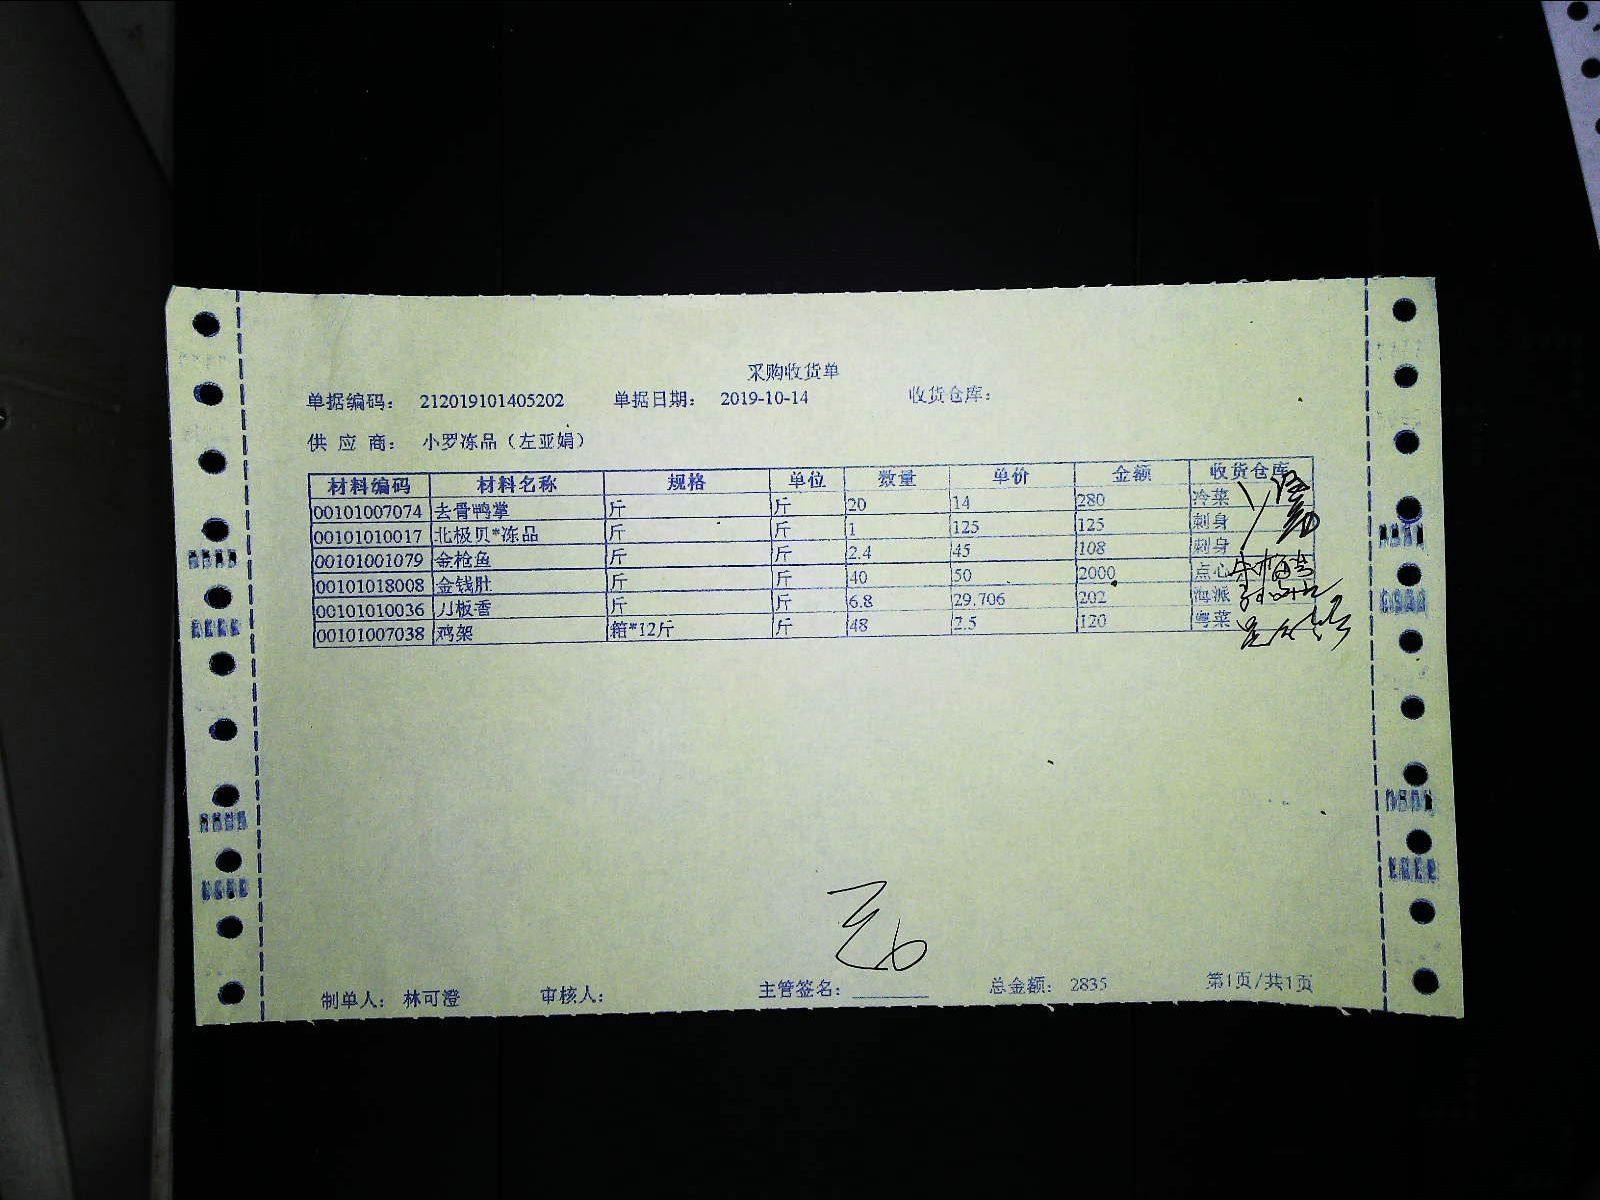 采购收货单
单据编码： 212019101405202 单据日期： 2019-10-14 收货仓库：
供 应 商： 小罗冻品（左亚娟）
材料编码 材料名称 规格 单位 数量 单价 金额 收货仓库
00101007074 去骨鸭掌 斤 斤 20 14 280 冷菜
00101010017 北极贝*冻品 斤 斤 1 125 125 刺身
00101001079 金枪鱼 斤 斤 2.4 45 108 刺身
00101018008 金钱肚 斤 斤 40 50 2000 点心
00101010036 刀板香 斤 斤 6.8 29.706 202 海派
00101007038 鸡架 箱*12斤 斤 48 2.5 120 粤菜
制单人： 林可澄 审核人： 主管签名： 总金额： 2835 第1页/共1页